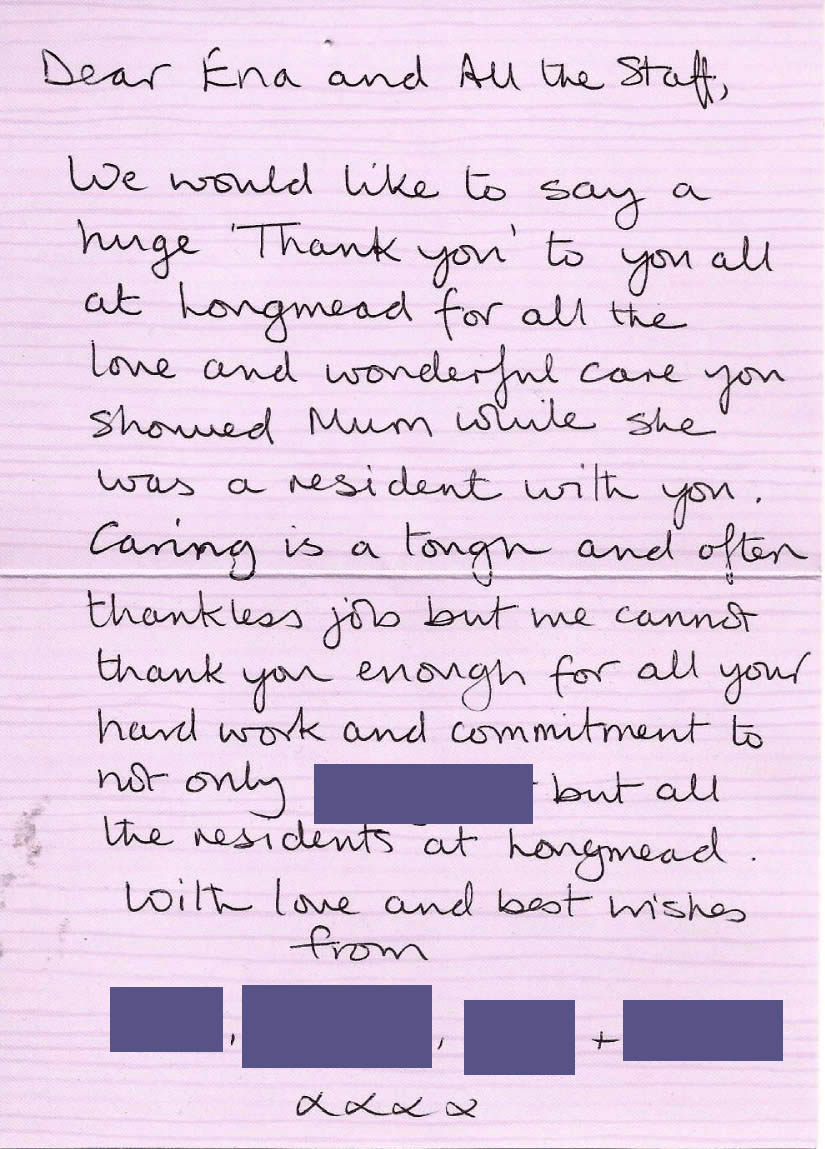 Dear Ena and All the Staff,
We would like to say a
huge 'Thank you' to you all
at Longmead for all the
love and wonderful care you
showed Mum while she
was a resident with you.
Caring is a tough and often
thankless job but we cannot
thank you enough for all your
hard work and commitment to
not only but all
the residents at Longmead.
With love and best wishes
from
, , +
xxxx